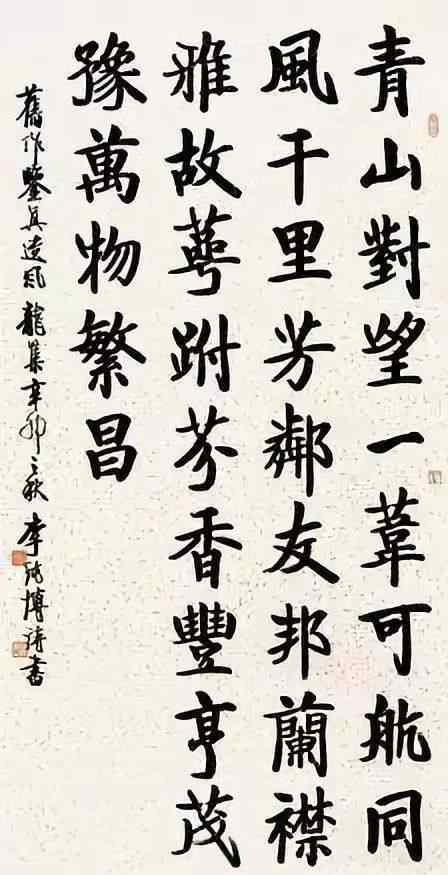 青山對望一葦可航同
風千里芳鄰友邦蘭襟
雅故萼跗芬香豐亨茂
豫萬物繁昌
舊作鑒真遺風 龍集辛卯之秋 李純博詩書